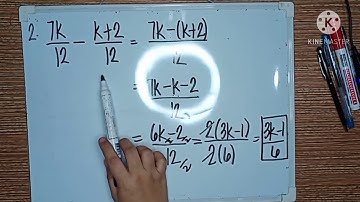 2. 7k/12 - k+2/12 = 7k-(k+2)/12
= 7k-k-2/12
= 6k-2/12 = 2(3k-1)/2(6) = 3k-1/6
KINEMASTER